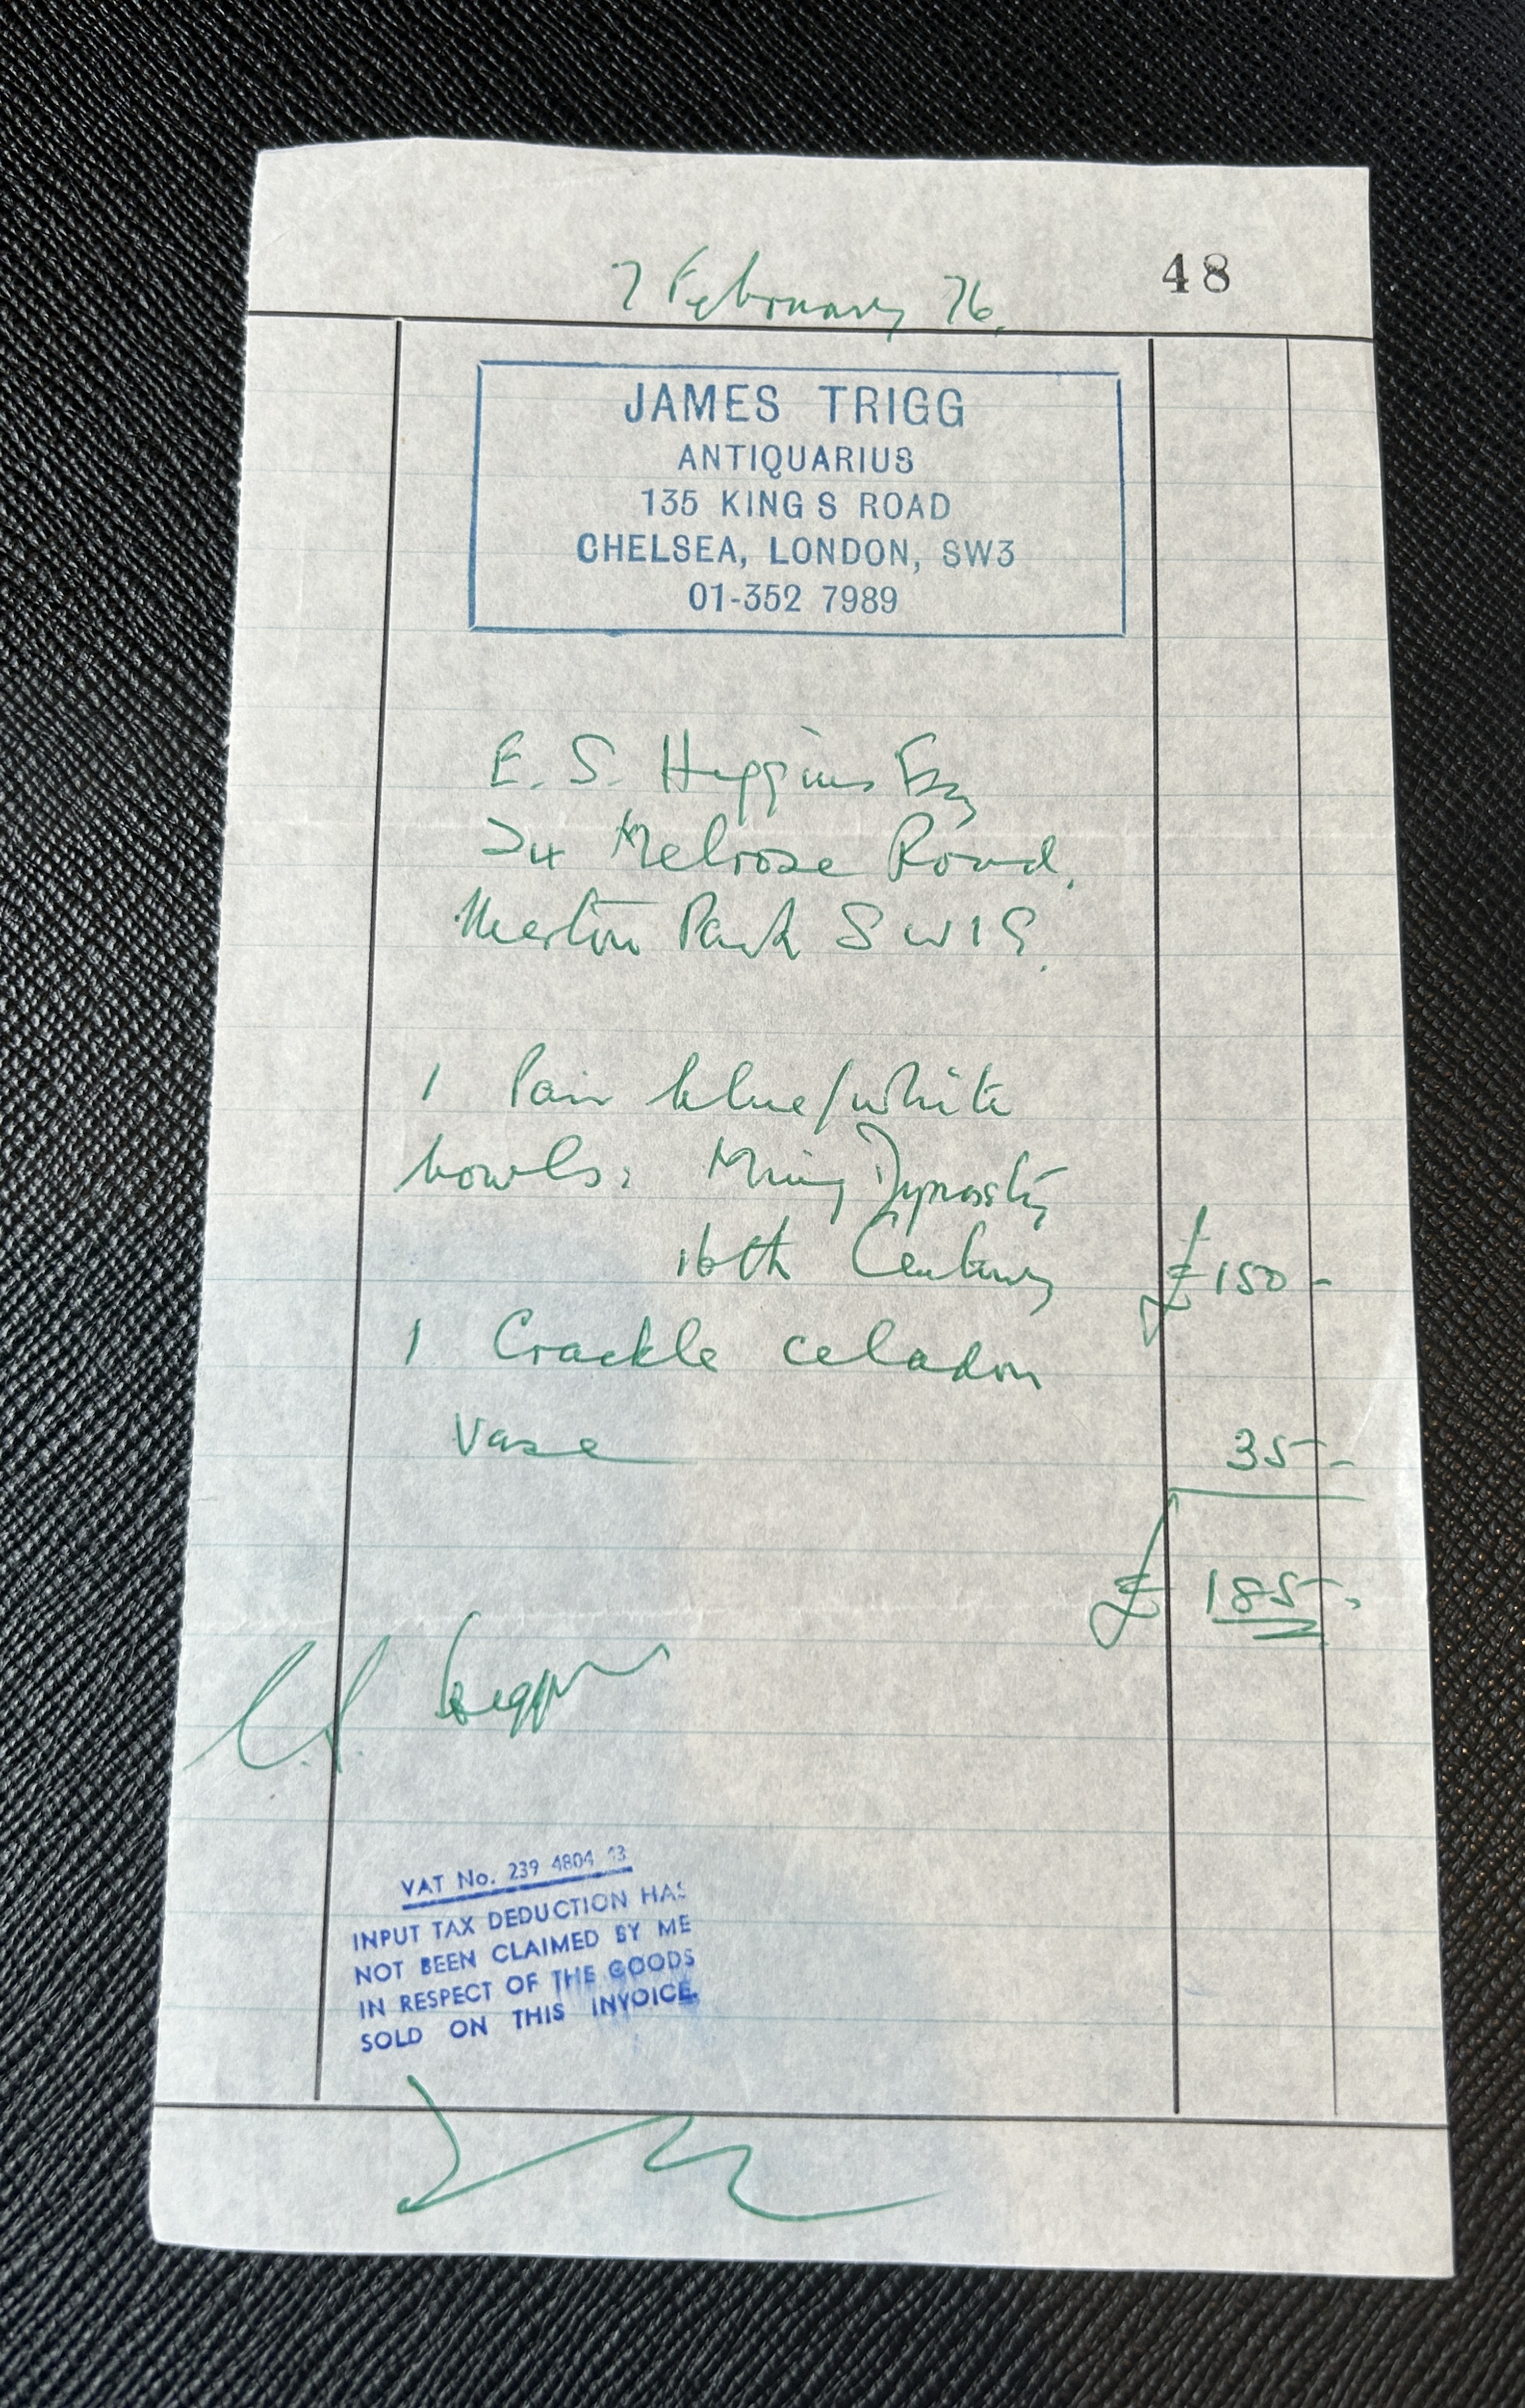 7 February 76.
48
JAMES TRIGG
ANTIQUARIUS
135 KING S ROAD
CHELSEA, LONDON, SW3
01-352 7989
E. S. Higgins Esq
24 Melrose Road,
Merton Park SW19.
1 Pair blue/white
bowls: Ming Dynasty
16th Century £150-
1 Crackle celadon
Vase 35-
£185-
E.S. Higgins
VAT No. 239 4804 13
INPUT TAX DEDUCTION HAS
NOT BEEN CLAIMED BY ME
IN RESPECT OF THE GOODS
SOLD ON THIS INVOICE.